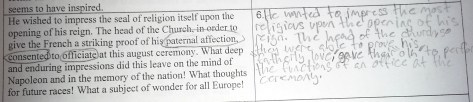 seems to have inspired.
He wished to impress the seal of religion itself upon the
opening of his reign. The head of the Church, in order to
give the French a striking proof of his paternal affection,
consented to officiate at this august ceremony. What deep
and enduring impressions did this leave on the mind of
Napoleon and in the memory of the nation! What thoughts
for future races! What a subject of wonder for all Europe!
6. He wanted to impress the most
religious upon the opening of his
reign. The head of the church
then were able to prove his
fatherly love, gave them others perform
the functions of an office at the
ceremony.